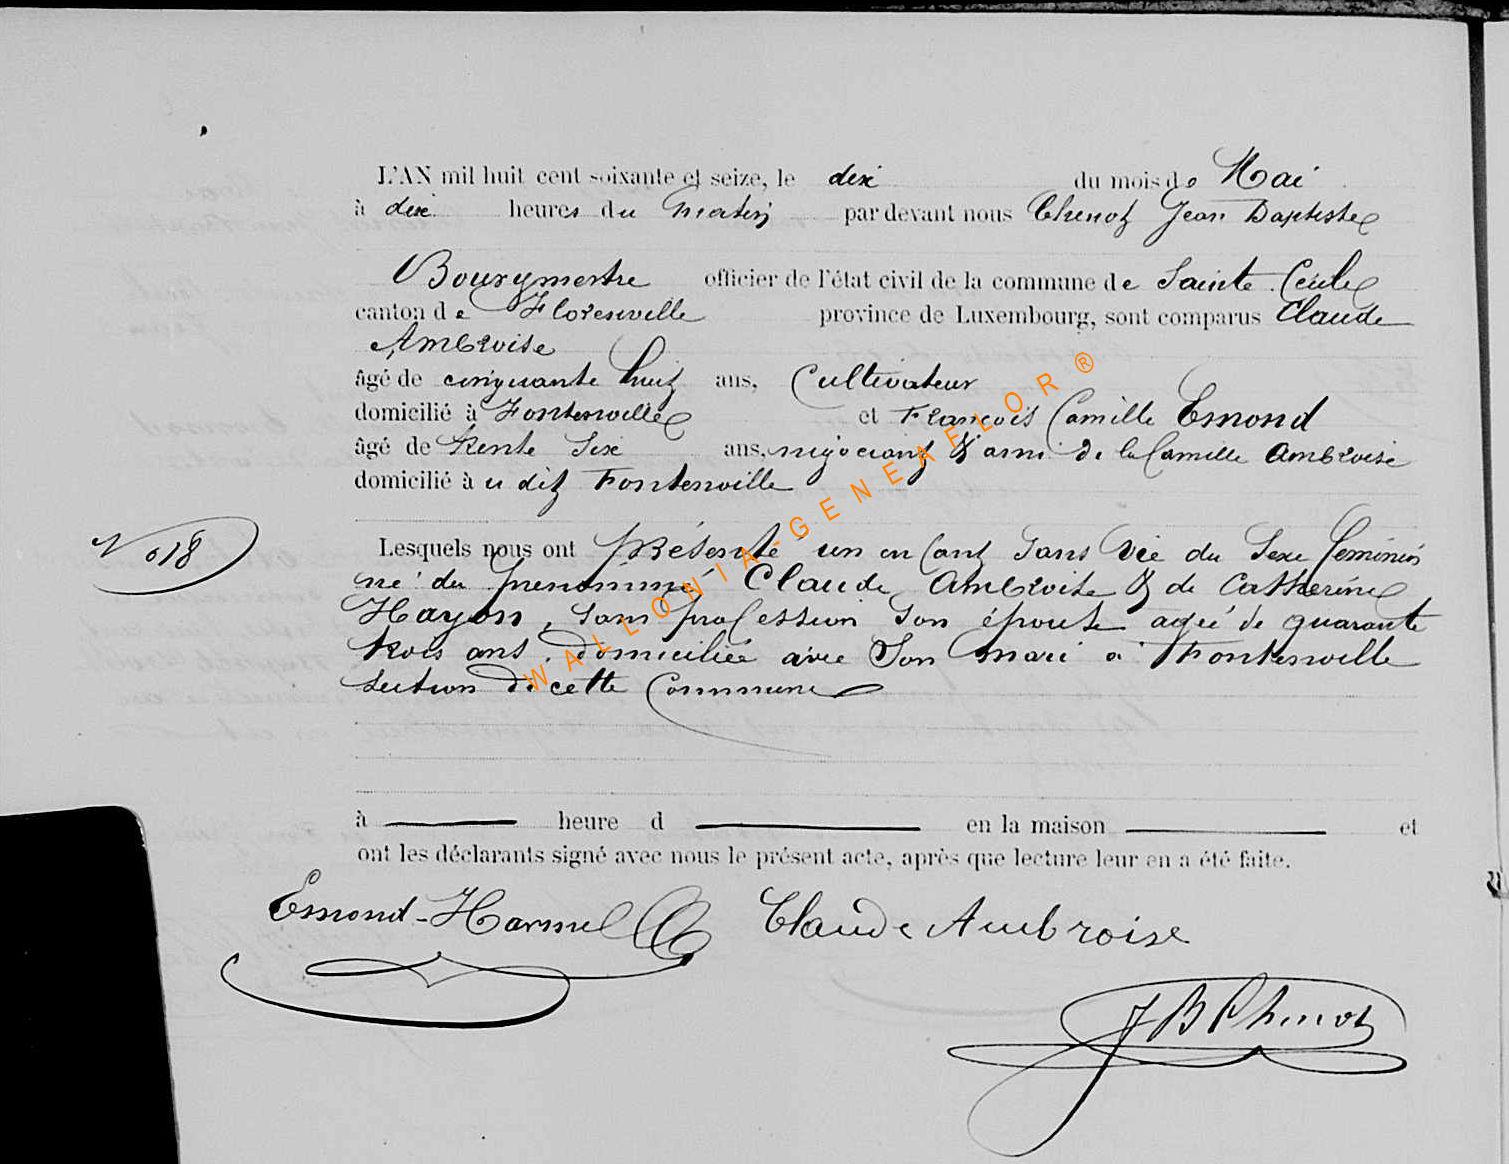 L'AN mil huit cent soixante et seize, le dix du mois de Mai
à dix heures du matin par devant nous Chenot Jean Baptiste
Bourgmestre officier de l'état civil de la commune de Sainte Cécile
canton de Florenville province de Luxembourg, sont comparus Claude
Ambroise
âgé de cinquante huit ans, Cultivateur
domicilié à Fontenoille et François Camille Emond
âgé de trente six ans, négociant & ami de la famille Ambroise
domicilié à u dit Fontenoille
N° 18
Lesquels nous ont présenté un enfant sans vie du sexe féminin
né du prénommé Claude Ambroise & de Catherine
Hayon, sans profession son épouse agée de quarante
trois ans, domiciliée avec son mari à Fontenoille
section de cette Commune
à heure d en la maison et
ont les déclarants signé avec nous le présent acte, après que lecture leur en a été faite.
Emond-Harmel Claude Ambroise
JB Chenot
WALLONIA-GENEAFLOR®